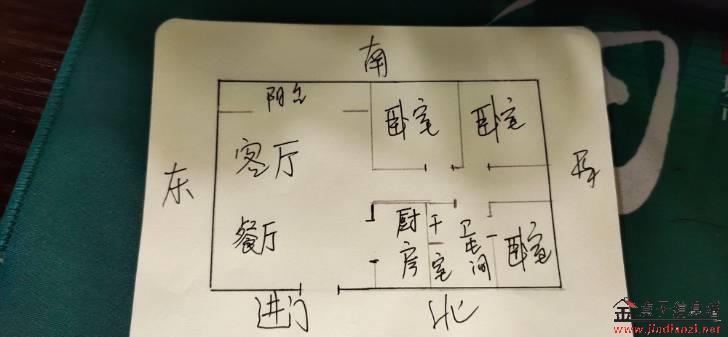 南
阳台
卧室
卧室
客厅
东
西
餐厅
厨房
干室
卫生间
卧室
进门
北
金鼎子信息通
www.jindianzi.net